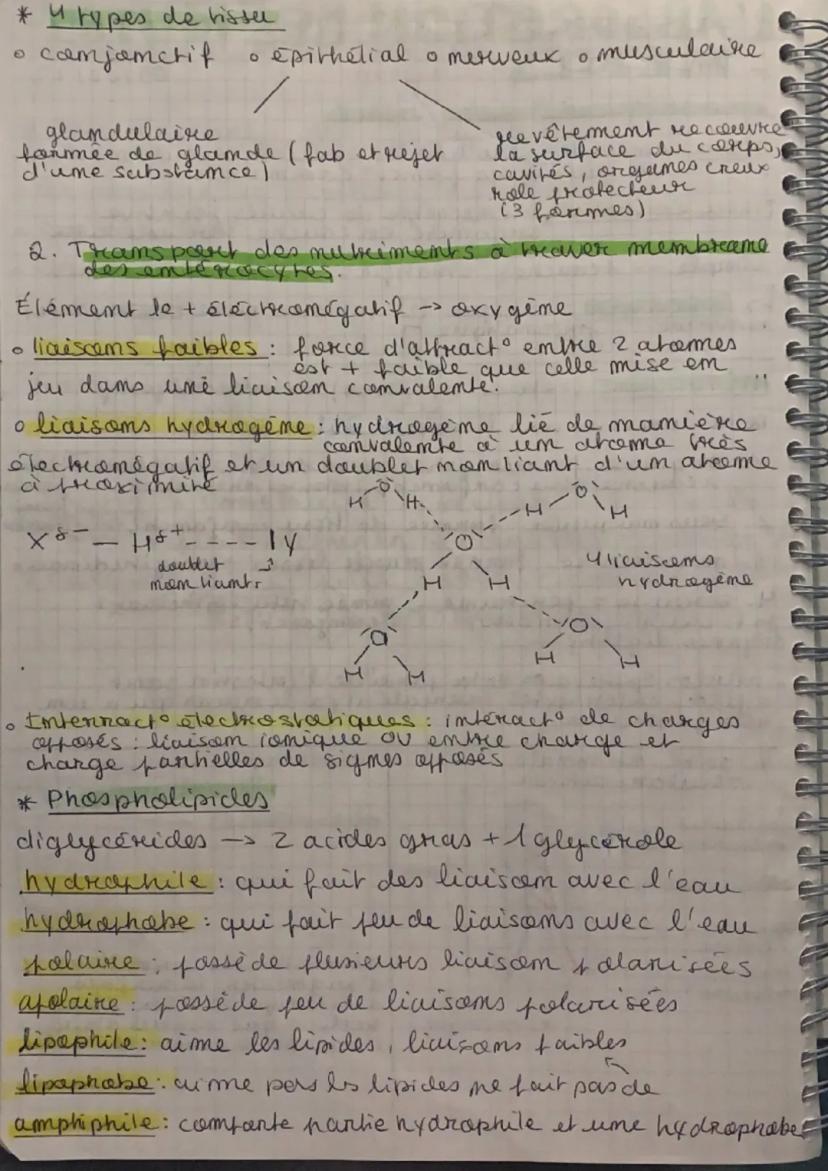 * 4 types de tissu
o conjonctif o épithélial o nerveux o musculaire
glandulaire
formée de glande (fab et rejet
d'une substance)
revêtement recouvre
la surface du corps,
cavités, organes creux
role protecteur
(3 formes)
2. Transport des nutriments à traver membrane
des entérocytes.
Élément le + éléctronégatif -> oxygène
o liaisons faibles : force d'attract° entre 2 atomes
est + faible que celle mise en
jeu dans une liaison convalente.
o liaisons hydrogène : hydrogène lié de manière
convalente à un atome très
électronégatif et un doublet non liant d'un atome
à proximité
X δ- — H δ+ ---- | Y
doublet
non liant
H O H
H O H
O
H H
4 liaisons
hydrogène
O
H H
O
H H
o Interract° électrostatiques : interact° de charges
opposés : liaison ionique OU entre charge et
charge partielles de signes opposés
* Phospholipides
diglycérides -> 2 acides gras + 1 glycérole
hydrophile : qui fait des liaison avec l'eau
hydrophobe : qui fait peu de liaisons avec l'eau
polaire : possède plusieurs liaison polarisées
apolaire : possède peu de liaisons polarisées
lipophile : aime les lipides, liaisons faibles
lipophobe : aime pas les lipides ne fait pas de
amphiphile : comporte partie hydrophile et une hydrophobe